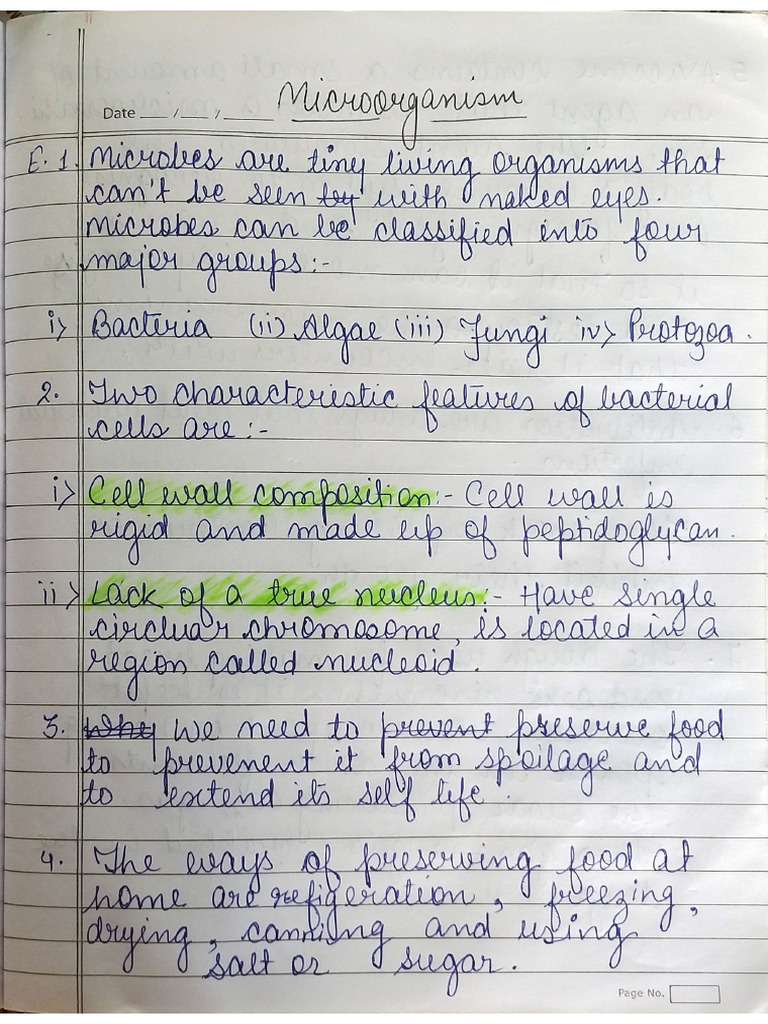 Microorganism
Date __/__/__
E.1. Microbes are tiny living organisms that
can't be seen by with naked eyes.
Microbes can be classified into four
major groups:-
i> Bacteria (ii) Algae (iii) Fungi iv> Protozoa.
2. Two characteristic features of bacterial
cells are:-
i> Cell wall composition:- Cell wall is
rigid and made up of peptidoglycan.
ii> Lack of a true nucleus:- Have single
circluar chromosome, is located in a
region called nucleoid.
3. Why We need to prevent preserve food
to prevenent it from spoilage and
to extend its self life.
4. The ways of preserving food at
home are refigeration, freezing,
drying, canning and using
salt or sugar.
Page No.